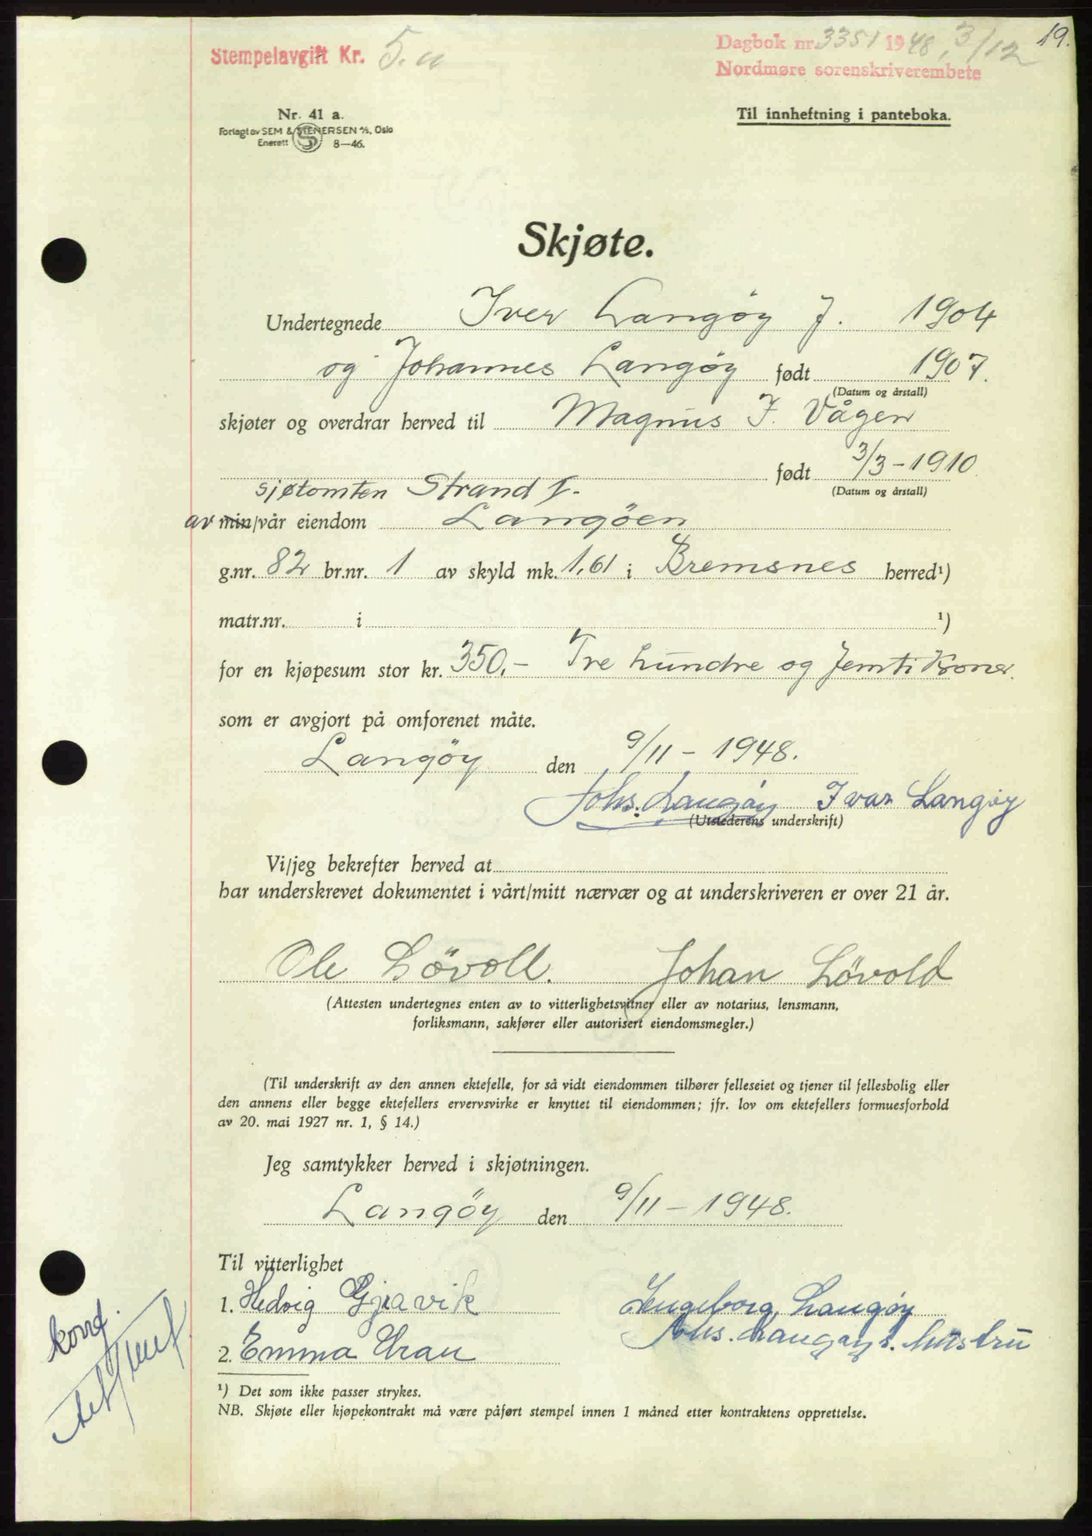 Stempelavgift Kr. 5.
Dagbok nr. 3351 1948, 3/12 19.
Nordmøre sorenskriverembete
Nr. 41 a.
Forlagt av SEM & STENERSEN A/S, Oslo
Enerett S 8—46.
Til innheftning i panteboka.
Skjøte.
Undertegnede Iver Langöy J. 1904
og Johannes Langöy født 1907.
(Datum og årstall)
skjøter og overdrar herved til Magnus J. Vågen
født 3/3-1910
(Datum og årstall)
sjøtomten Strand I.
av min/vår eiendom Langöen
g.nr. 82 br.nr. 1 av skyld mk. 1,61 i Bremsnes herred¹)
matr.nr. i ¹)
for en kjøpesum stor kr. 350,- Tre hundre og femti kroner.
som er avgjort på omforenet måte.
Langöy den 9/11-1948.
Johs. Langöy Ivar Langöy
(Utstederens underskrift)
Vi/jeg bekrefter herved at
har underskrevet dokumentet i vårt/mitt nærvær og at underskriveren er over 21 år.
Ole Lövoll. Johan Lövold
(Attesten undertegnes enten av to vitterlighetsvitner eller av notarius, lensmann,
forliksmann, sakfører eller autorisert eiendomsmegler.)
(Til underskrift av den annen ektefelle, for så vidt eiendommen tilhører felleseiet og tjener til fellesbolig eller
den annens eller begge ektefellers ervervsvirke er knyttet til eiendommen; jfr. lov om ektefellers formuesforhold
av 20. mai 1927 nr. 1, § 14.)
Jeg samtykker herved i skjøtningen.
Langöy den 9/11-1948.
Til vitterlighet
1. Hedvig Gjävik Ingeborg Langöy
Johs. Langöy s. hustru
2. Emma
konf.
¹) Det som ikke passer strykes.
NB. Skjøte eller kjøpekontrakt må være påført stempel innen 1 måned etter kontraktens opprettelse.